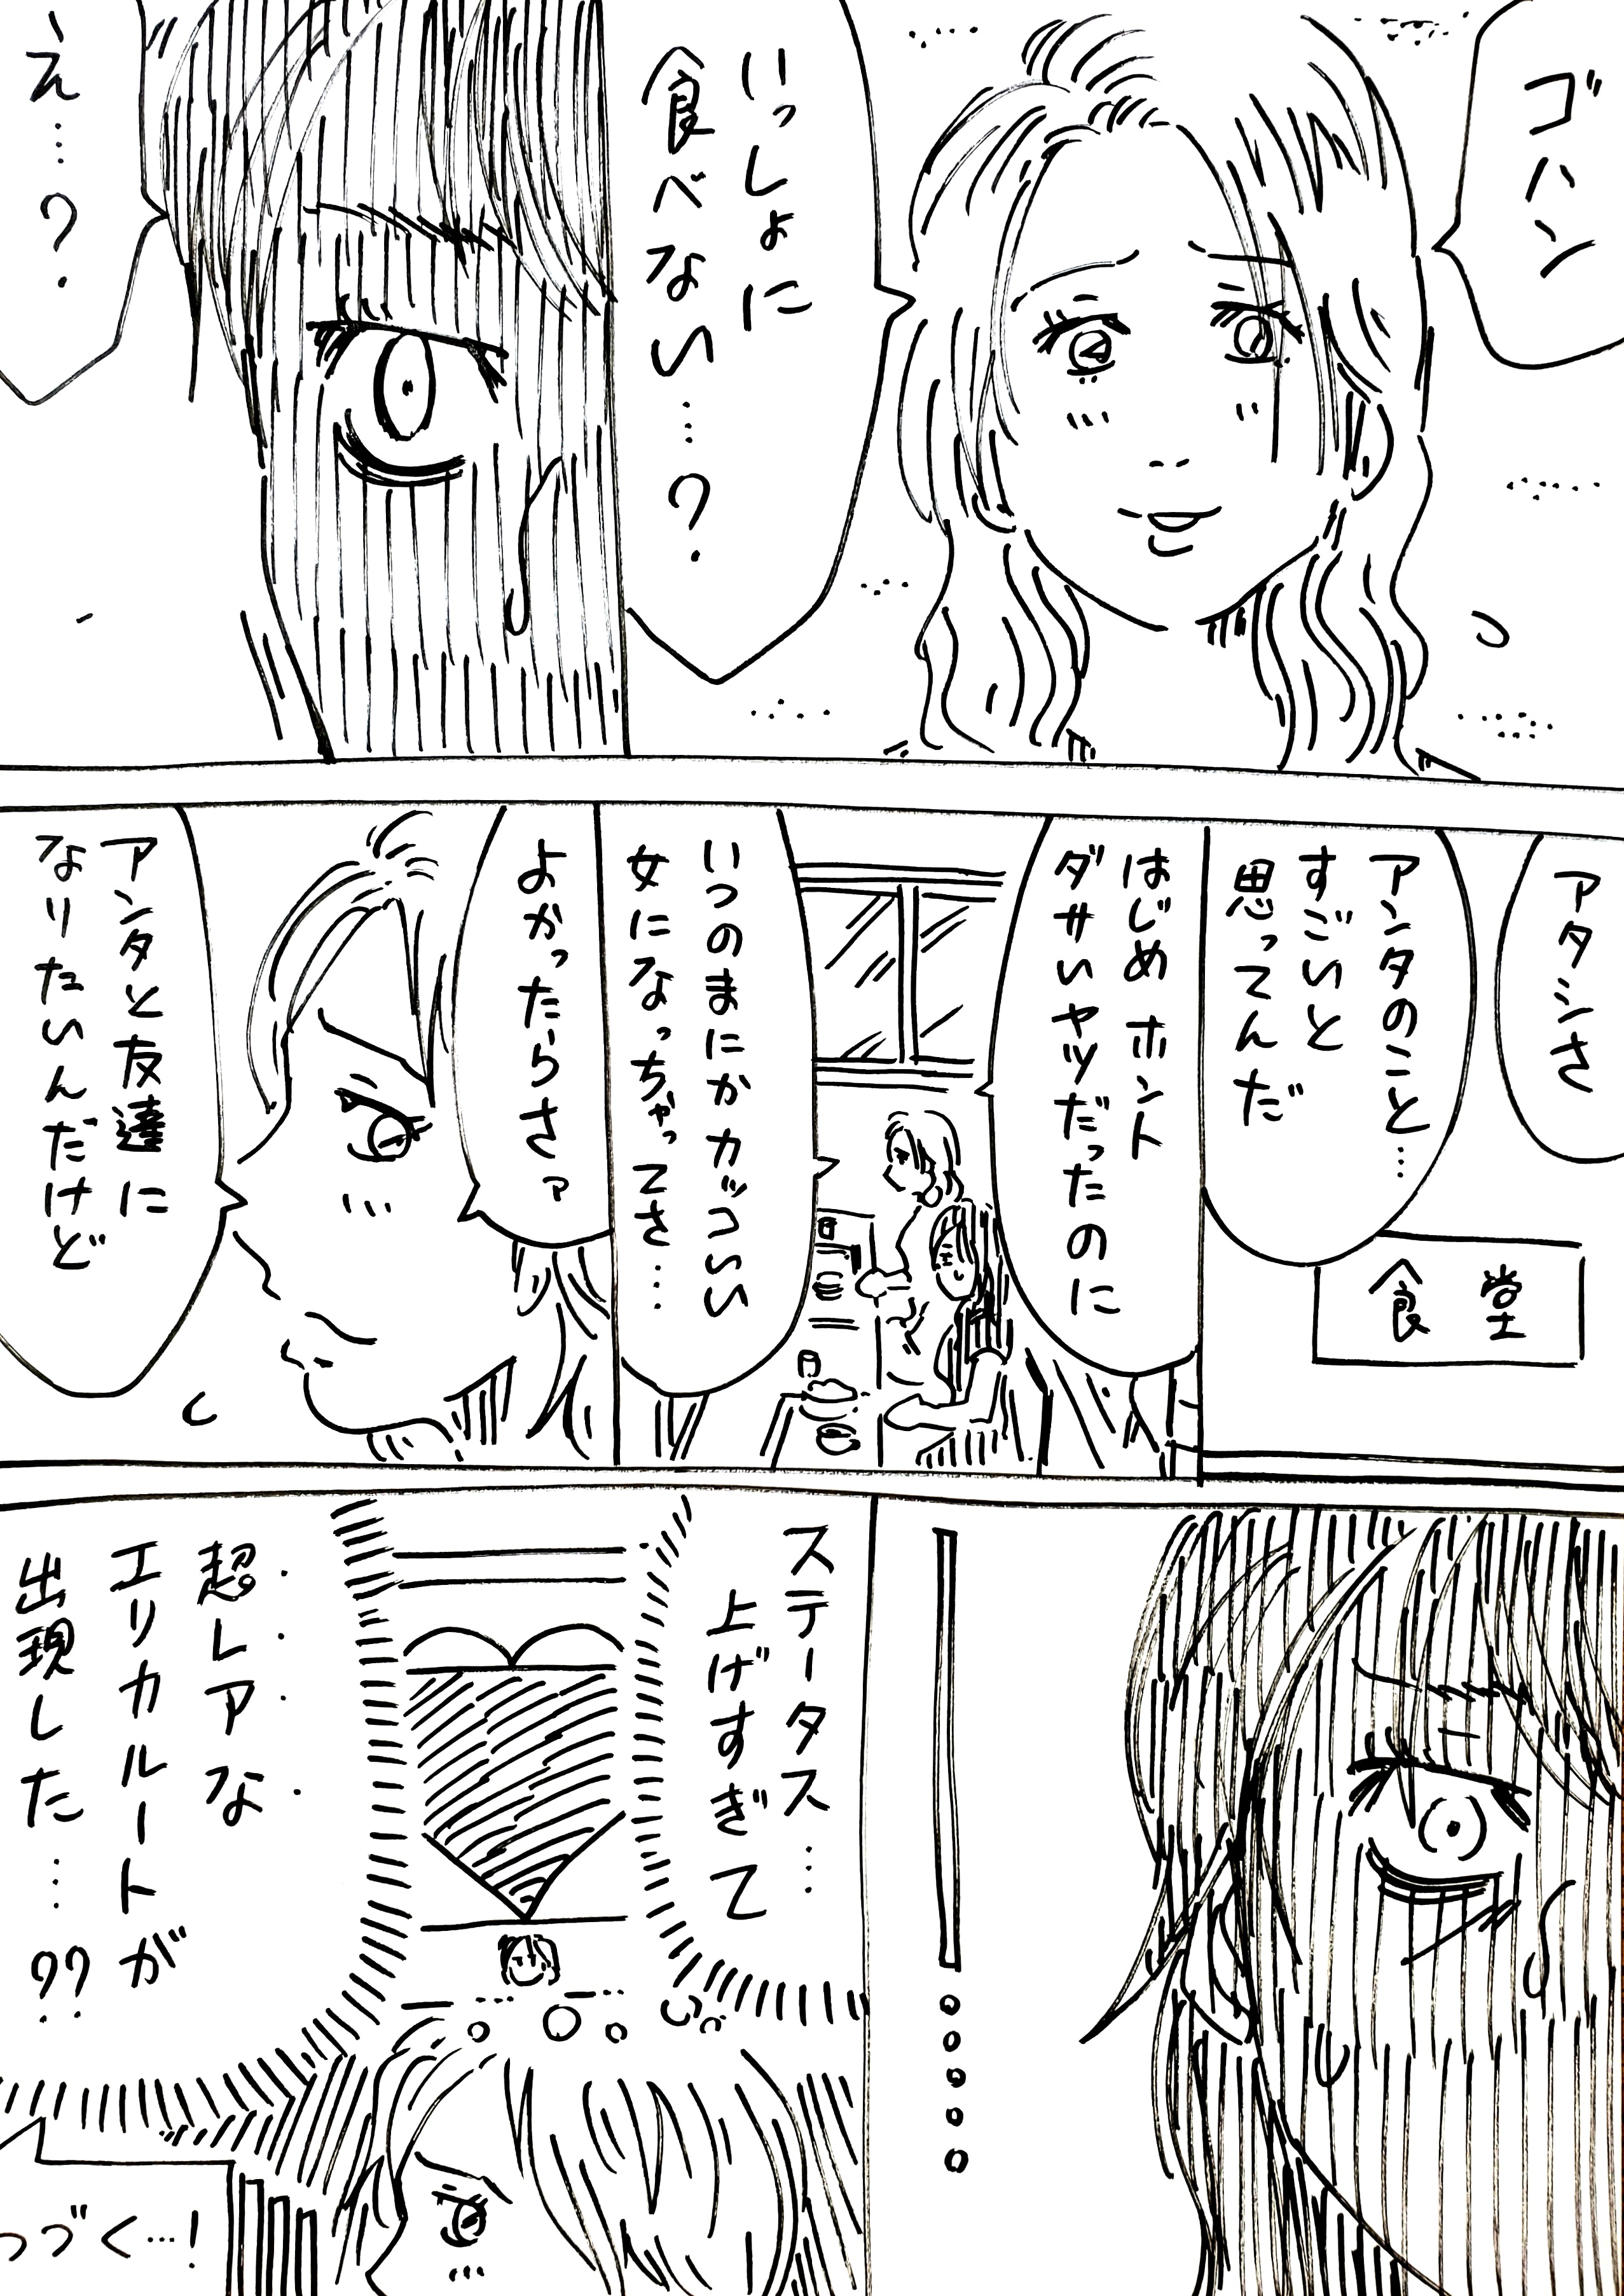 ゴハン
いっしょに
食べない…?
え…?
アタシさ
アンタのこと…
すごいと
思ってんだ
食堂
はじめホント
ダサいヤツだったのに
いつのまにかカッコいい
女になっちゃってさ…
よかったらさァ
アンタと友達に
なりたいんだけど
ステータス…
上げすぎて
超レアな
エリカルートが
出現した…??
つづく…!